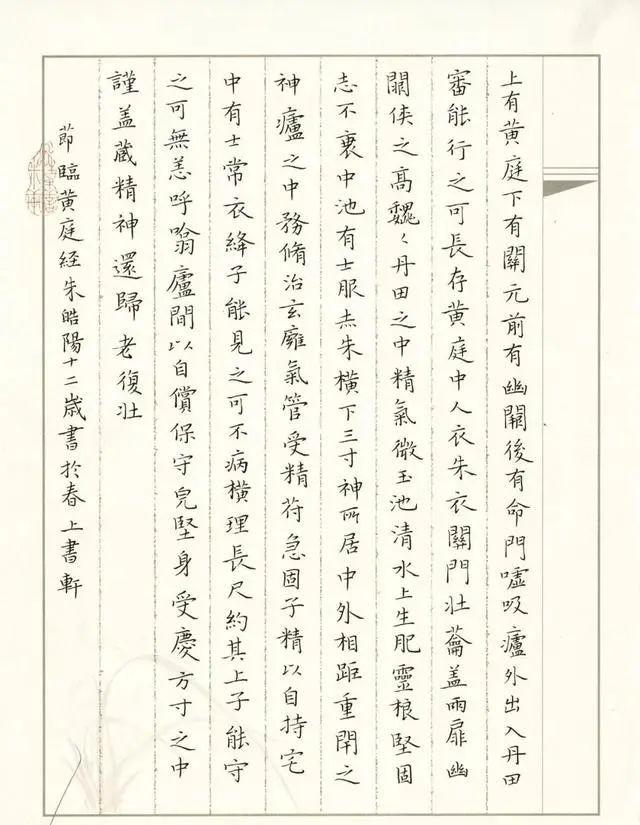 上有黄庭下有關元前有幽闕後有命門噓吸廬外出入丹田
審能行之可長存黄庭中人衣朱衣關門壯蘥盖兩扉幽
闕俠之高魏々丹田之中精氣微玉池清水上生肥靈根堅固
志不衰中池有士服赤朱橫下三寸神所居中外相距重閉之
神廬之中務脩治玄廱氣管受精苻急固子精以自持宅
中有士常衣絳子能見之可不病橫理長尺約其上子能守
之可無恙呼噏廬間以自償保守皃堅身受慶方寸之中
謹盖藏精神還歸老復壯
節臨黄庭經朱皓陽十二歲書於春上書軒